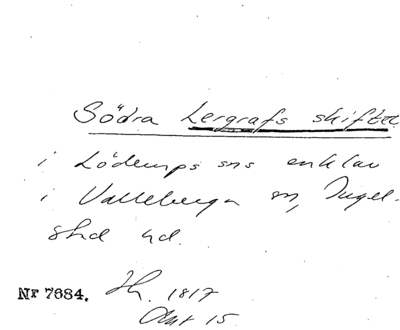 Södra Lergrafs skiftet
i Löderups sns enklav
i Valleberga sn, Ingel-
stad hd.
Nr 7684. 1817
Akt 15